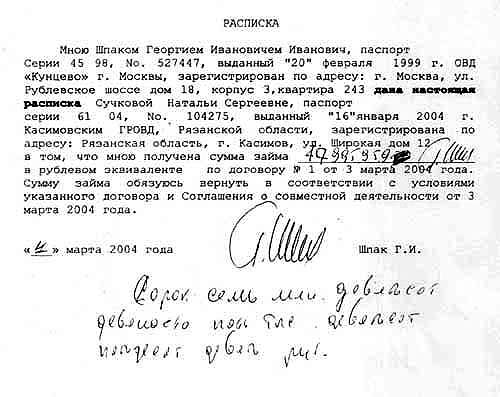 РАСПИСКА
Мною Шпаком Георгием Ивановичем Иванович, паспорт
Серии 45 98, No. 527447, выданный "20" февраля 1999 г. ОВД
«Кунцево» г. Москвы, зарегистрирован по адресу: г. Москва, ул.
Рублевское шоссе дом 18, корпус 3,квартира 243 дана настоящая
расписка Сучковой Натальи Сергеевне, паспорт
серии 61 04, No. 104275, выданный "16"января 2004 г.
Касимовским ГРОВД, Рязанской области, зарегистрирован по
адресу: Рязанская область, г. Касимов, ул. Широкая дом 12
в том, что мною получена сумма займа 47995959
в рублевом эквиваленте по договору № 1 от 3 марта 2004 года.
Сумму займа обязуюсь вернуть в соответствии с условиями
указанного договора и Соглашения о совместной деятельности от 3
марта 2004 года.
«4» марта 2004 года Шпак Г.И.
Сорок семь млн. девятьсот
девяносто пять тыс. девятьсот
пятьдесят девять руб.